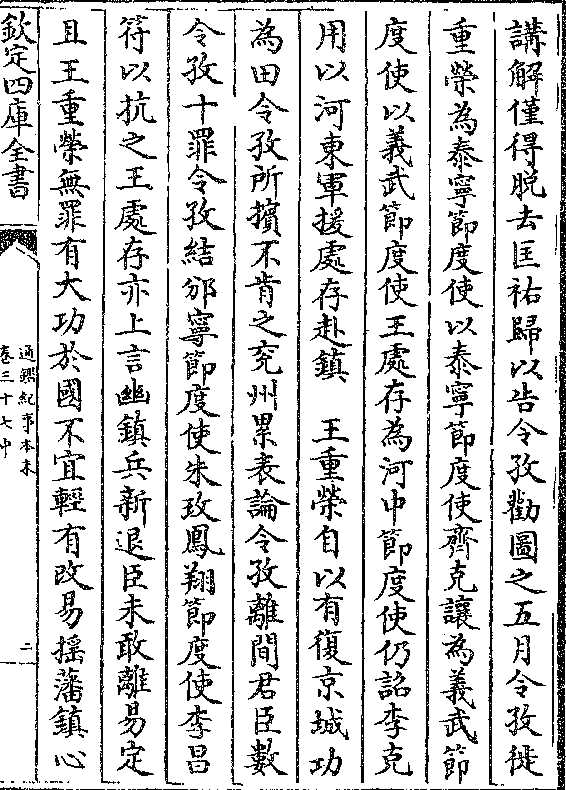 講解僅得脫去匡祐歸以告令孜勸圖之五月令孜徙
重榮為泰寧節度使以泰寧節度使齊克讓為義武節
度使以義武節度使王處存為河中節度使仍詔李克
用以河東軍援處存赴鎮　王重榮自以有復京城功
為田令孜所擯不肯之兖州累表論令孜離間君臣數
令孜十罪令孜結邠寧節度使朱玫鳳翔節度使李昌
符以抗之王處存亦上言幽鎮兵新退臣未敢離易定
且王重榮無罪有大功於國不宜輕有改易揺藩鎮心
欽定四庫全書
通鑑紀事本末
卷三十七中
二